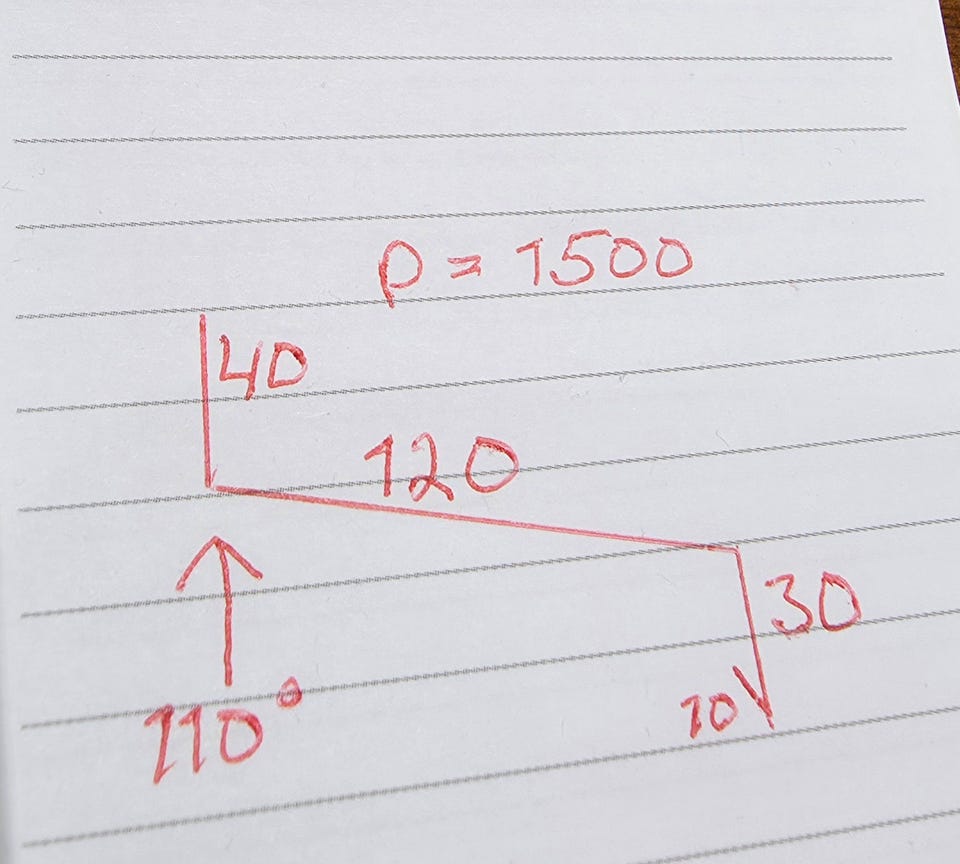 P = 1500
40
120
30
10
110°